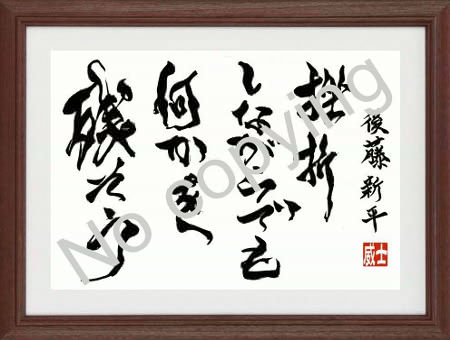 後藤新平
挫折
しながらでも
何かを
残そう
威士
No copying